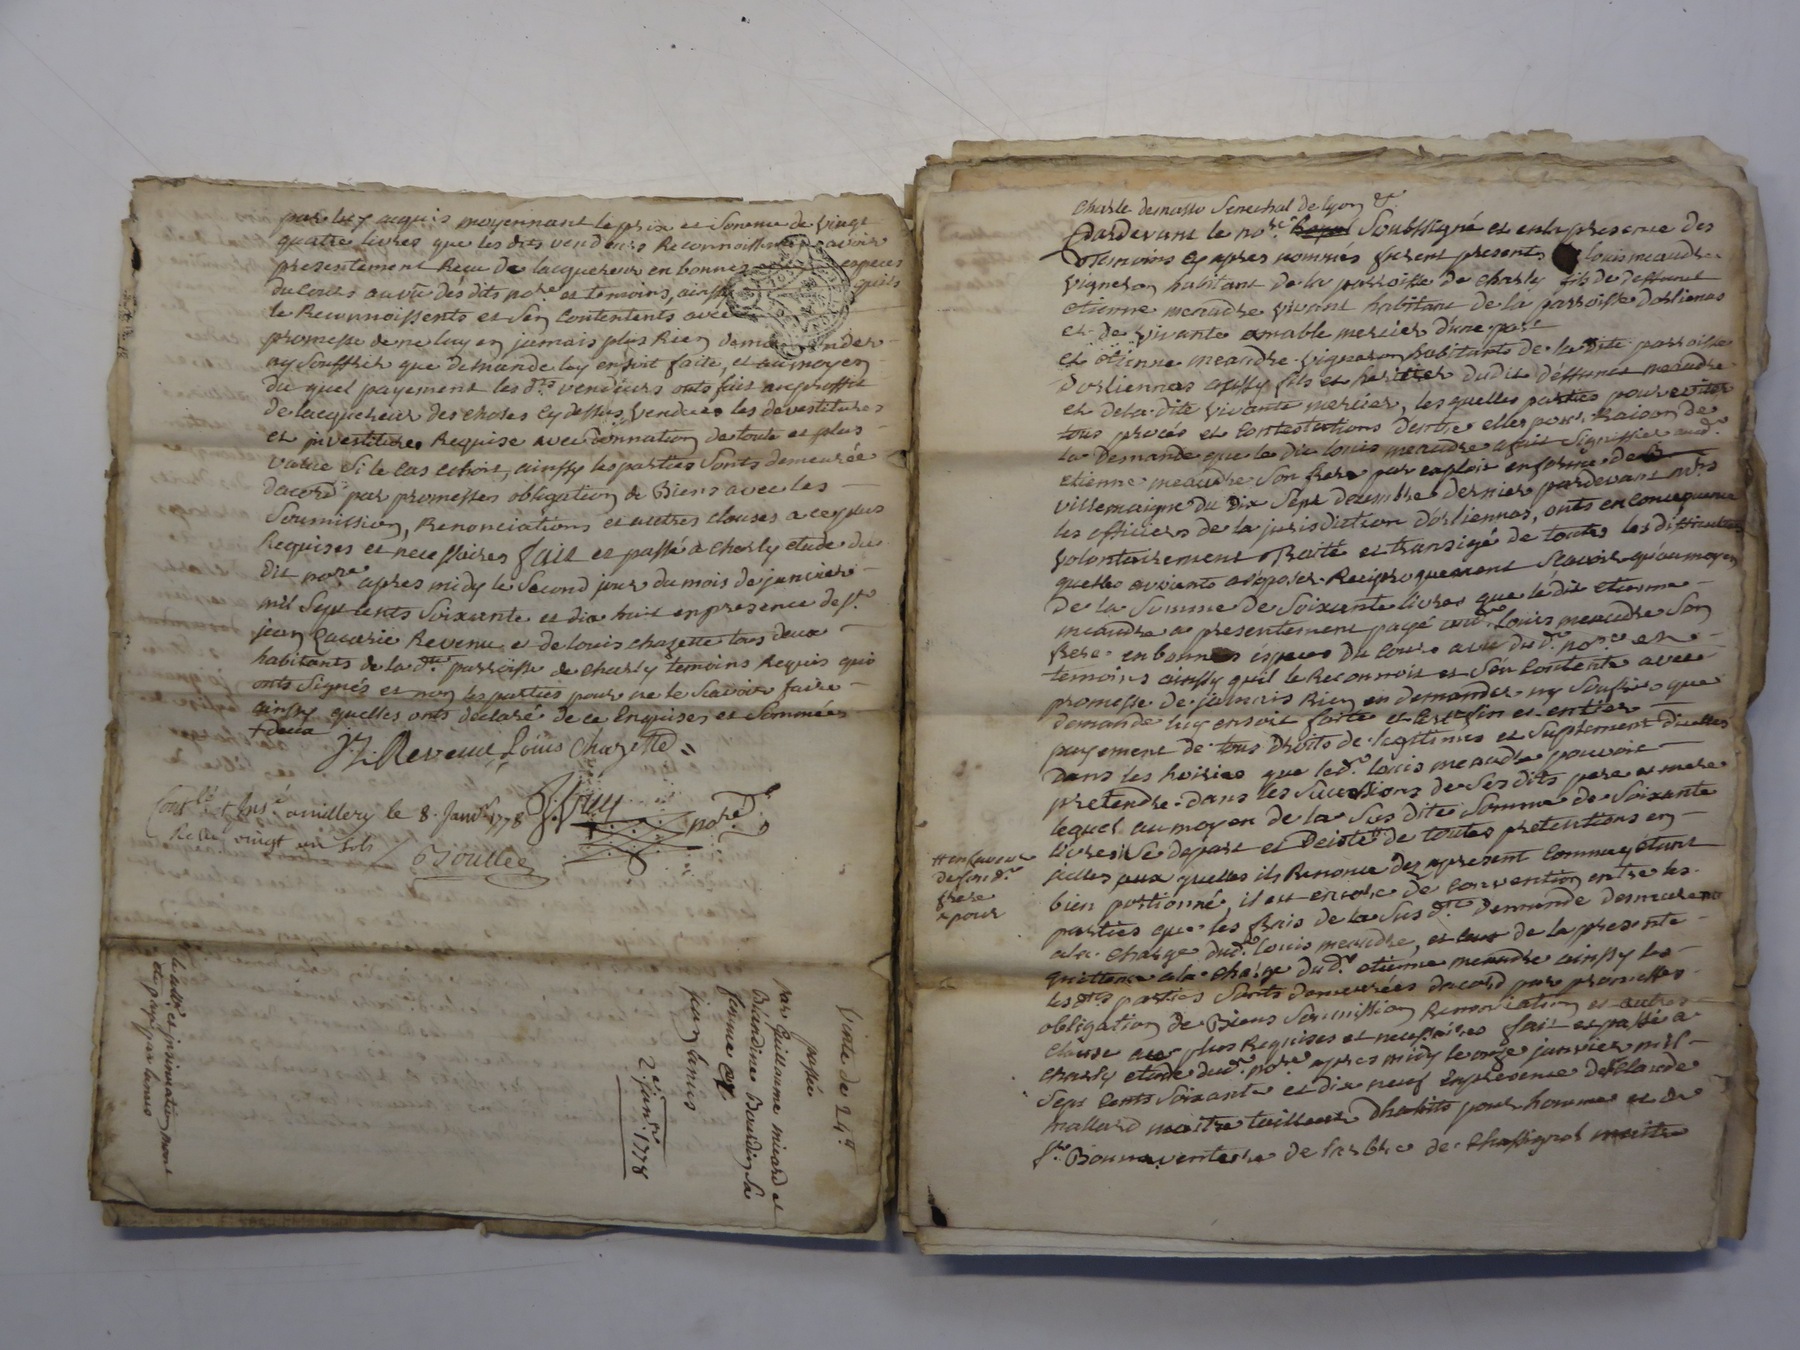 par luy acquis moyennant le prix et Somme de vingt
quatre livres que les dits vendeurs Reconnoissent avoir
presentement Reçu de lacquereur en bonnes especes
du cours au vü des dits nore et temoins, ainsy quils
le Reconnoissents et sen Contentents avec
promesse de ne luy en jamais plus Rien demander
ny Souffrir que demande luy en soit faite, et au moyen
du quel payement les dts vendeurs onts fait au proffit
de lacquereur des choses cy dessus vendues les devestitures
et investitures Requise avec donnation de toute et plus
value Si le cas echoit, ainssy les parties Sonts demeurée
dacord par promesses obligation de Biens avec les
Soumission, Renonciations et autres clauses a ce plus
Requises et necessaires fait et passé a charly etude du
dit nore apres midy le Second jour du mois de janvier
mil Sept cents Soixante et dix huit en presence de Sr
jean Zacarie Revenu et de louis chazette tous deux
habitants de la dte parroisse de charly temoins Requis qui
onts Signés et non les parties pour ne le Scavoir faire
ainsy quelles onts déclaré de ce Enquises et Sommées
+ deux
J. Z. Revenu Louis Chazette
nore
Contlé & Insé a millery le 8. Janvr 1778
Reçu vingt un sols
Boullée
Vente de 24lt
passée
par Guillaume micard et
Blandine Bourdin Sa
femme et
jean lanus
2e janer 1778
+ en faveur
de son dt
frere
^ pour
Charle demasso Senechal de lyon &
Pardevant le nore Soubssigné et en la presence des
Temoins cy apres nommés furent presents louis meaudre
vigneron habitant de la parroisse de charly fils de deffunt
etienne meaudre vivant habitant de la parroisse dorlienas
et de vivante amable mercier d'une part
et etienne meaudre vigneron habitants de la dite parroisse
dorliennas aussy fils et heritier dudit deffunct meaudre
et de la dite vivante mercier, les quelles parties pour eviter
tous procés et contestations dentre elles pour Raison de
la Demande que le dit louis meaudre a fait Signiffier audt
etienne meaudre Son frere par exploit en forme de
villemaigne du dix Sept decembre dernier pardevant mrs
les officiers de la jurisdiction d'orliennas, onts en consequence
volontairement Traité et transigé de toutes les difficultés
quelles avoients a oposer Reciproquement Scavoir qu'au moyen
de la Somme de Soixante livres que le dit etienne
meaudre a presentement payé audt Louis meaudre Son
frere en bonnes especes du cours au vü dudt nore et
temoins ainssy quil le Reconnoit et sen Contente avec
promesse de jamais Rien en demander ny Soufrir que
demande luy en soit faite et cest fin et entier
payement de tous droits de legitimes et Suplement dicelles
dans les hoiries que ledt louis meaudre pouvoit
pretendre dans les Successions de Ses dits pere et mere
lequel au moyen de la Sus dite Somme de Soixante
livres Se depart et Deiste de toutes pretentions en
icelles aux quelles ils Renonce des apresent comme étant
bien portionné, il est encore de Convention entre les
parties que les frais de la Sus dte demande demeurent
a la charge dudt louis meaudre, et de la presente
quittance a la charge du dt etienne meaudre ainssy les
les dts parties Sonts demeurées dacord par promesses
obligation de Biens Soumission Renonciation et autres
Clause a ce plus Requises et necessaires fait et passé a
charly etude dudt nore apres midy le onze janvier mil
Sept Cents Soixante et dix neuf En presence de Claude
mallard maitre tailleur dhabits pour homme et de
Sr Bonnaventure de larbre de chassignol maitre